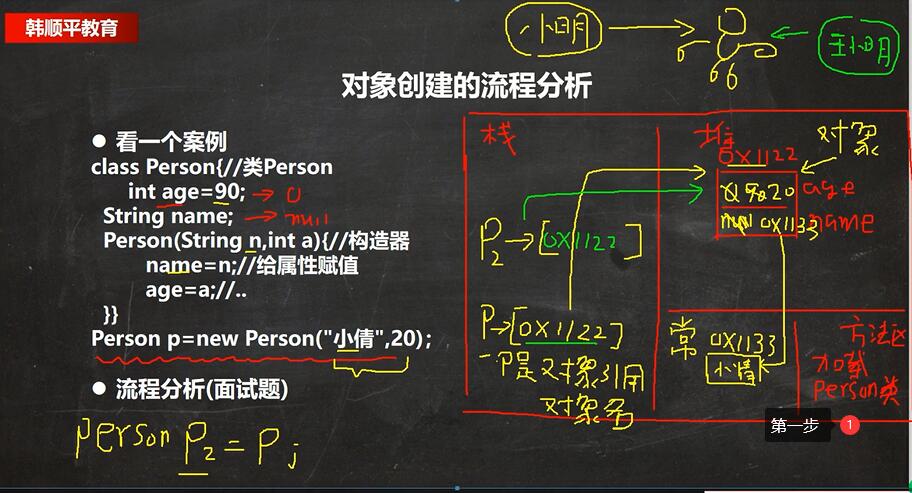 韩顺平教育
小明
王小明
对象创建的流程分析
● 看一个案例
class Person{//类Person
int age=90; → 0
String name; → null
Person(String n,int a){//构造器
name=n;//给属性赋值
age=a;//..
}}
Person p=new Person("小倩",20);
● 流程分析(面试题)
Person P2 = P;
栈
堆
对象
0X1122
90 20 age
null 0X1133 name
P2→[0X1122]
P→[0X1122]
P是对象引用
对象名
常
0X1133
小倩
方法区
加载
Person类
第一步
1